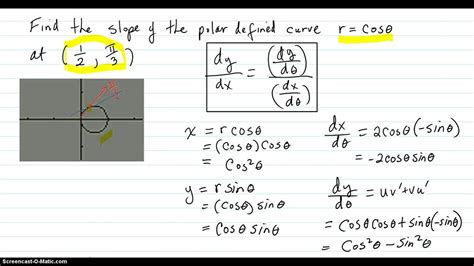 Find the slope of the polar defined curve r = cosθ
at (1/2, π/3)
dy/dx = (dy/dθ)/(dx/dθ)
x = r cosθ
= (cosθ)cosθ
= cos²θ
y = r sinθ
= (cosθ) sinθ
= cosθ sinθ
dx/dθ = 2cosθ(-sinθ)
= -2cosθsinθ
dy/dθ = uv' + vu'
= cosθcosθ + sinθ(-sinθ)
= cos²θ - sin²θ
Screencast-O-Matic.com